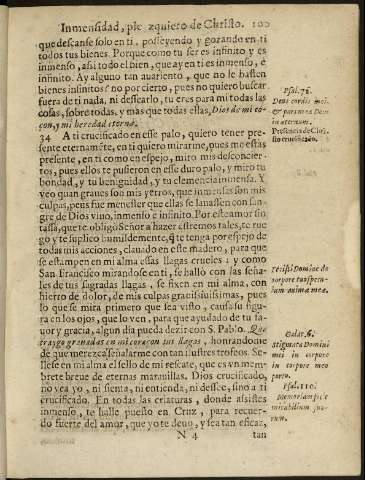 Inmensidad, pie zquiero de Christo. 100
que descanse solo en ti, posseyendo y gozando en ti
todos tus bienes. Porque como tu ser es infinito y es
inmenso, assi todo el bien, que ay en ti es inmenso, è
infinito. Ay alguno tan auariento, que no le basten
bienes infinitos? no por cierto, pues no quiero buscar
fuera de ti nada, ni dessearlo, tu eres para mi todas las
cosas, sobre todas, y mas que todas ellas, Dios de mi co-
raçon, y mi heredad eterna.
Psal. 72.
Deus cordis mei,
& pars mea Deus
in aeternum.
Presencia de Christo
crucificado.
34 A ti crucificado en esse palo, quiero tener pre-
sente eternamẽte, en ti quiero mirarme, pues me estàs
presente, en ti como en espejo, miro mis desconcier-
tos, pues ellos te pusieron en esse duro palo, y miro tu
bondad, y tu benignidad, y tu clemencia inmensa. Y
veo quan graues son mis yerros, que inmensas son mis
culpas, pues fue menester que ellas se lauassen con san-
gre de Dios viuo, inmenso è infinito. Por este amor sin
tassa, que te obligò Señor a hazer estremos tales, te rue
go y te suplico humildemente, q̃ te tenga por espejo de
todas mis acciones, clauado en este madero, para que
se estampen en mi alma essas llagas crueles: y como
San Francisco mirandose en ti, se hallò con las seña-
les de tus sagradas llagas, se fixen en mi alma, con
hierro de dolor, de mis culpas grauissimas, pues
lo que se mira primero que sea visto, causa su figu
ra en los ojos, que lo ven, para que ayudado de tu fa-
uor y gracia, algun dia pueda dezir con S. Pablo. Que
traygo grauadas en mi coraçon tus llagas, honrandome
de que merezca señalarme con tan ilustres trofeos. Se-
llese en mi alma el sello de mi rescate, que es vn mem-
brete breue de eternas marauillas. Dios crucificado,
no vea yo, ni sienta, ni entienda, ni dessee, sino a ti
crucificado. En todas las criaturas, donde assistes
inmenso, te halle puesto en Cruz, para recuer-
do fuerte del amor, que yo te deuo, y sea tan eficaz,
Domine de
corpore
animam meam.
Galat. 6.
Stigmata Domini
mei in corpore
in corpore meo
porto.
Psal. 110.
Memoriam fecit
mirabilium suo-
rum.
N 4 tan